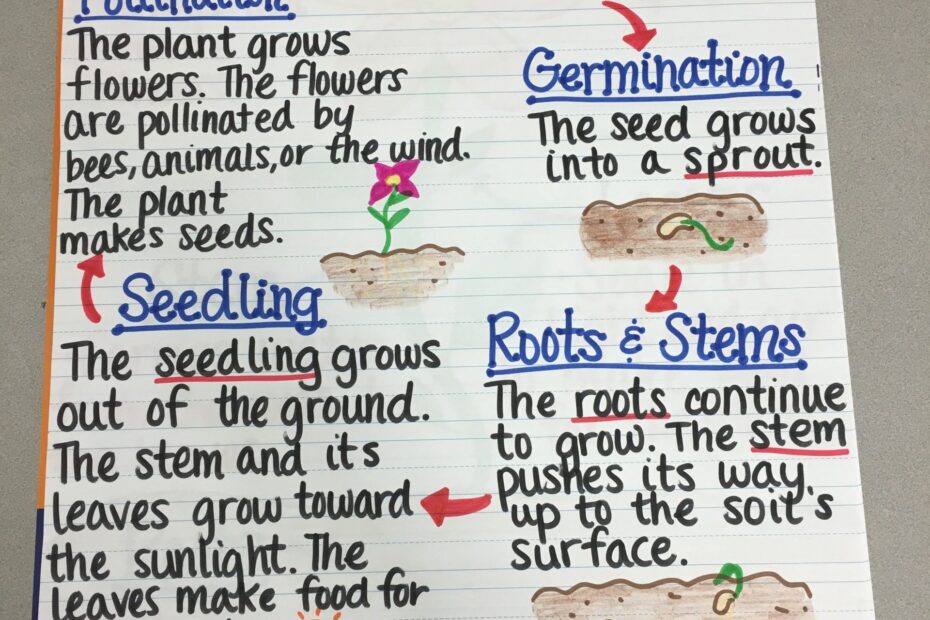 Pollination
The plant grows
flowers. The flowers
are pollinated by
bees, animals, or the wind.
The plant
makes seeds.
Seedling
The seedling grows
out of the ground.
The stem and its
leaves grow toward
the sunlight. The
leaves make food for
Germination
The seed grows
into a sprout.
Roots & Stems
The roots continue
to grow. The stem
pushes its way
up to the soil's
surface.